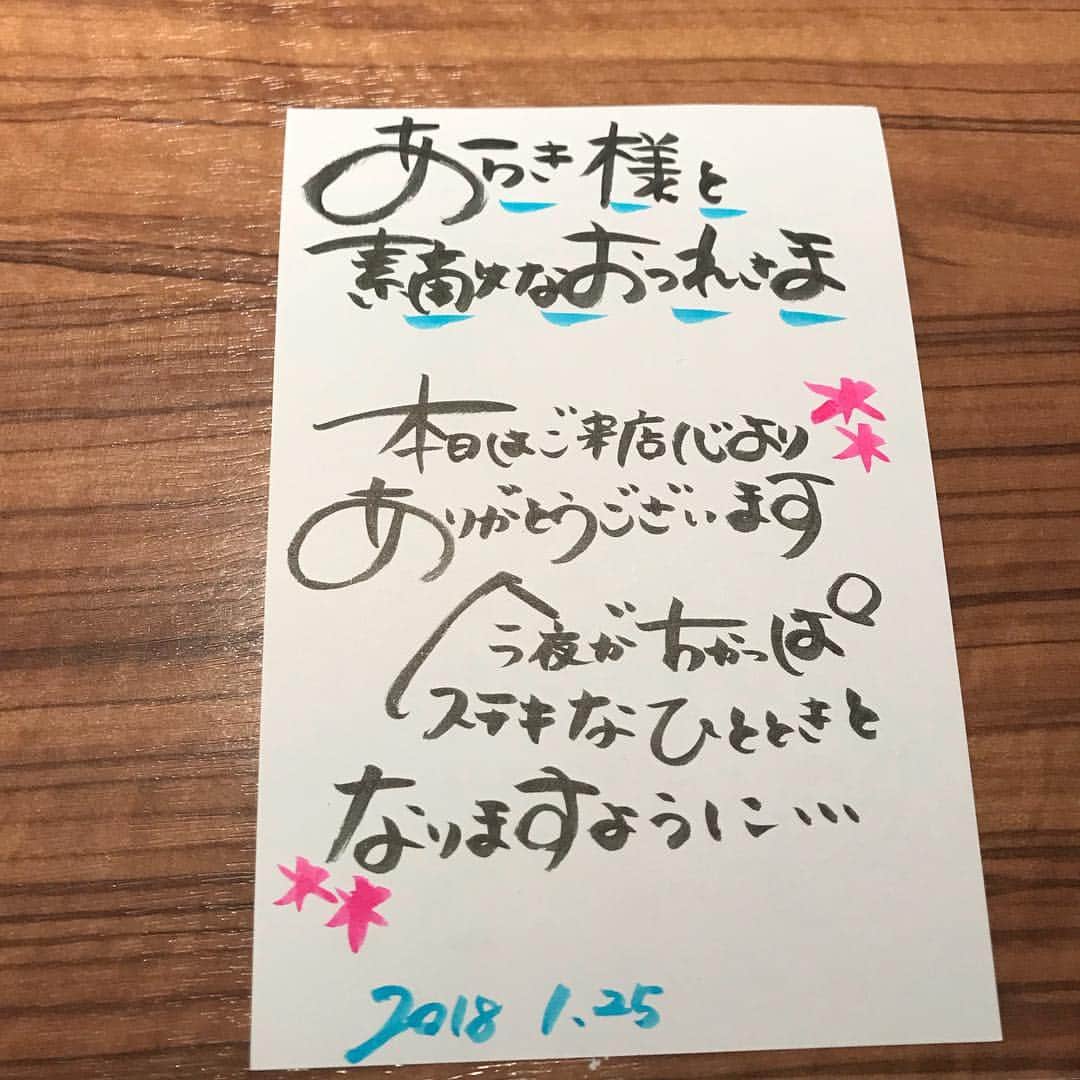 あらき様と
素敵なおつれさま
本日はご来店心より
ありがとうございます
今夜がちかっぱ
ステキなひとときと
なりますように…
2018 1.25